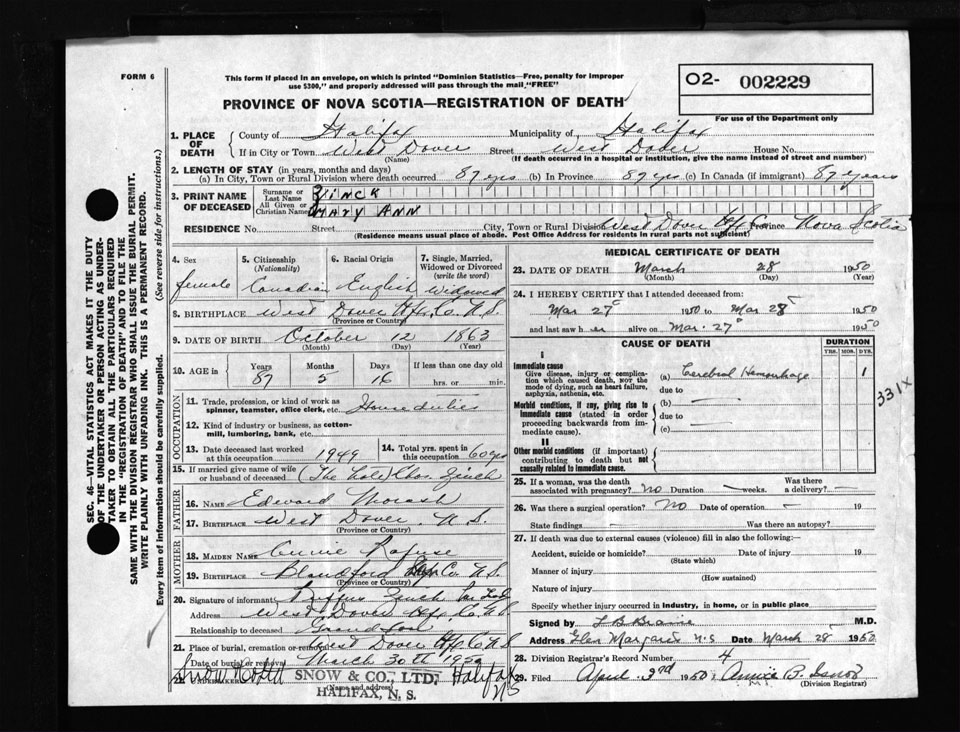 FORM 6
This form if placed in an envelope, on which is printed "Dominion Statistics—Free, penalty for improper
use $300," and properly addressed will pass through the mail "FREE"
O2- 002229
For use of the Department only
PROVINCE OF NOVA SCOTIA—REGISTRATION OF DEATH
1. PLACE OF DEATH County of Halifax Municipality of Halifax
If in City or Town West Dover Street West Dover House No.
(Name) (If death occurred in a hospital or institution, give the name instead of street and number)
2. LENGTH OF STAY (in years, months and days)
(a) In City, Town or Rural Division where death occurred 87 yrs (b) In Province 87 yrs (c) In Canada (if immigrant) 87 years
3. PRINT NAME OF DECEASED Surname or Last Name ZINCK
All Given or Christian Names MARY ANN
RESIDENCE No. Street City, Town or Rural Division West Dover Hfx Co. Province Nova Scotia
(Residence means usual place of abode. Post Office Address for residents in rural parts not sufficient)
4. Sex 5. Citizenship (Nationality) 6. Racial Origin 7. Single, Married, Widowed or Divorced (write the word)
female Canadian English Widowed
8. BIRTHPLACE West Dover Hfx. Co. N.S.
(Province or Country)
9. DATE OF BIRTH October 12 1863
(Month) (Day) (Year)
10. AGE in Years Months Days If less than one day old
87 5 16 hrs. or min.
OCCUPATION
11. Trade, profession, or kind of work as
spinner, teamster, office clerk, etc. House duties
12. Kind of industry or business, as cotton-
mill, lumbering, bank, etc.
13. Date deceased last worked at this occupation 1949 14. Total yrs. spent in this occupation 60 yrs
15. If married give name of wife or husband of deceased (The late) Chas. Zinck
FATHER
16. NAME Edward Morash
17. BIRTHPLACE West Dover, N.S.
(Province or Country)
MOTHER
18. MAIDEN NAME Annie Rafuse
19. BIRTHPLACE Blandford Co. N.S.
(Province or Country)
20. Signature of informant Zinck
Address West Dover Hfx. Co. N.S.
Relationship to deceased Grandson
21. Place of burial, cremation or removal West Dover Hfx. Co. N.S.
Date of burial or removal March 30th 19
22. UNDERTAKER Snow & Co Ltd SNOW & CO., LTD. Halifax
(Name and address) N.S.
HALIFAX, N. S.
MEDICAL CERTIFICATE OF DEATH
23. DATE OF DEATH March 28 1950
(Month) (Day) (Year)
24. I HEREBY CERTIFY that I attended deceased from:
Mar 27 1950 to Mar 28 1950
and last saw her alive on Mar. 27 1950
CAUSE OF DEATH DURATION
YRS. MOS. DYS.
I
Immediate cause
Give disease, injury or complication which caused death, NOT the mode of dying, such as heart failure, asphyxia, asthenia, etc.
(a) Cerebral Hemorrhage 1
due to
331X
Morbid conditions, if any, giving rise to immediate cause (stated in order proceeding backwards from immediate cause).
(b)
due to
(c)
II
Other morbid conditions (if important) contributing to death but not causally related to immediate cause.
25. If a woman, was the death associated with pregnancy? No Duration — weeks. Was there a delivery? —
26. Was there a surgical operation? No Date of operation — 19
State findings — Was there an autopsy?
27. If death was due to external causes (violence) fill in also the following:—
Accident, suicide or homicide? Date of injury 19
(State which)
Manner of injury
(How sustained)
Nature of injury
Specify whether injury occurred in industry, in home, or in public place
Signed by M.D.
Address Glen Margaret N.S Date March 28 1950
28. Division Registrar's Record Number 4
29. Filed April 3rd 1950 Annie B.
(Division Registrar)
SEC. 46—VITAL STATISTICS ACT MAKES IT THE DUTY
OF THE UNDERTAKER OR PERSON ACTING AS UNDER-
TAKER TO OBTAIN ALL THE PARTICULARS REQUIRED
IN THE "REGISTRATION OF DEATH" AND TO FILE THE
SAME WITH THE DIVISION REGISTRAR WHO SHALL ISSUE THE BURIAL PERMIT.
WRITE PLAINLY WITH UNFADING INK. THIS IS A PERMANENT RECORD.
Every item of information should be carefully supplied. (See reverse side for instructions.)